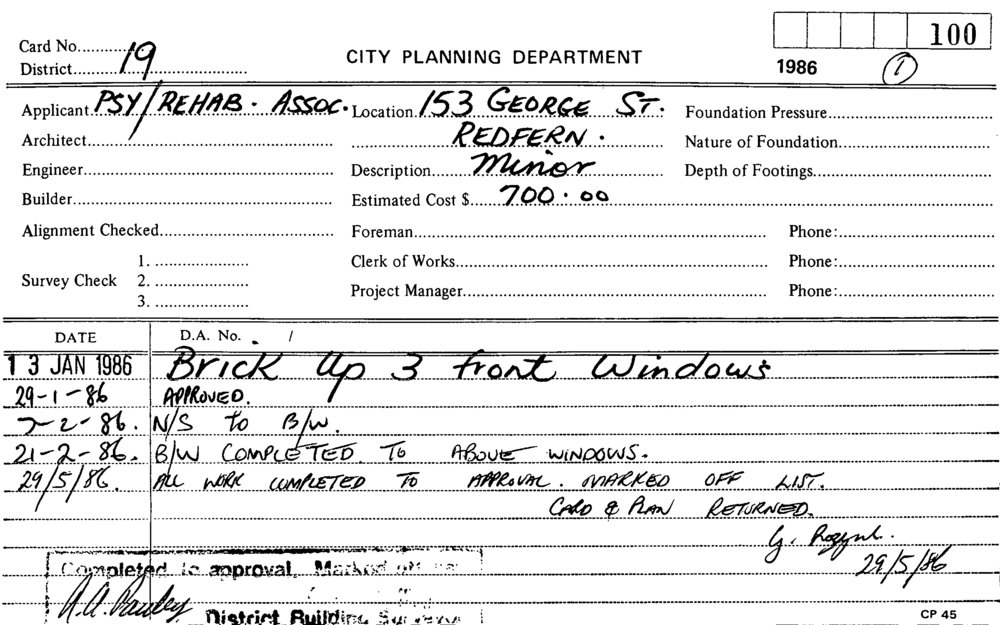 100
Card No.
District 19
CITY PLANNING DEPARTMENT
1986 1
Applicant PSY/REHAB. ASSOC. Location 153 GEORGE ST. Foundation Pressure
Architect REDFERN. Nature of Foundation
Engineer Description Minor Depth of Footings
Builder Estimated Cost $ 700.00
Alignment Checked Foreman Phone:
Clerk of Works Phone:
Survey Check 1. 2. 3.
Project Manager Phone:
DATE D.A. No. /
13 JAN 1986 Brick Up 3 front Windows
29-1-86 APPROVED.
7-2-86. N/S to B/W.
21-2-86. B/W COMPLETED TO ABOVE WINDOWS.
29/5/86. ALL WORK COMPLETED TO APPROVAL. MARKED OFF LIST.
CARD & PLAN RETURNED.
G.
29/5/86
Completed to approval. Marked off
District Building Surveyor
CP 45